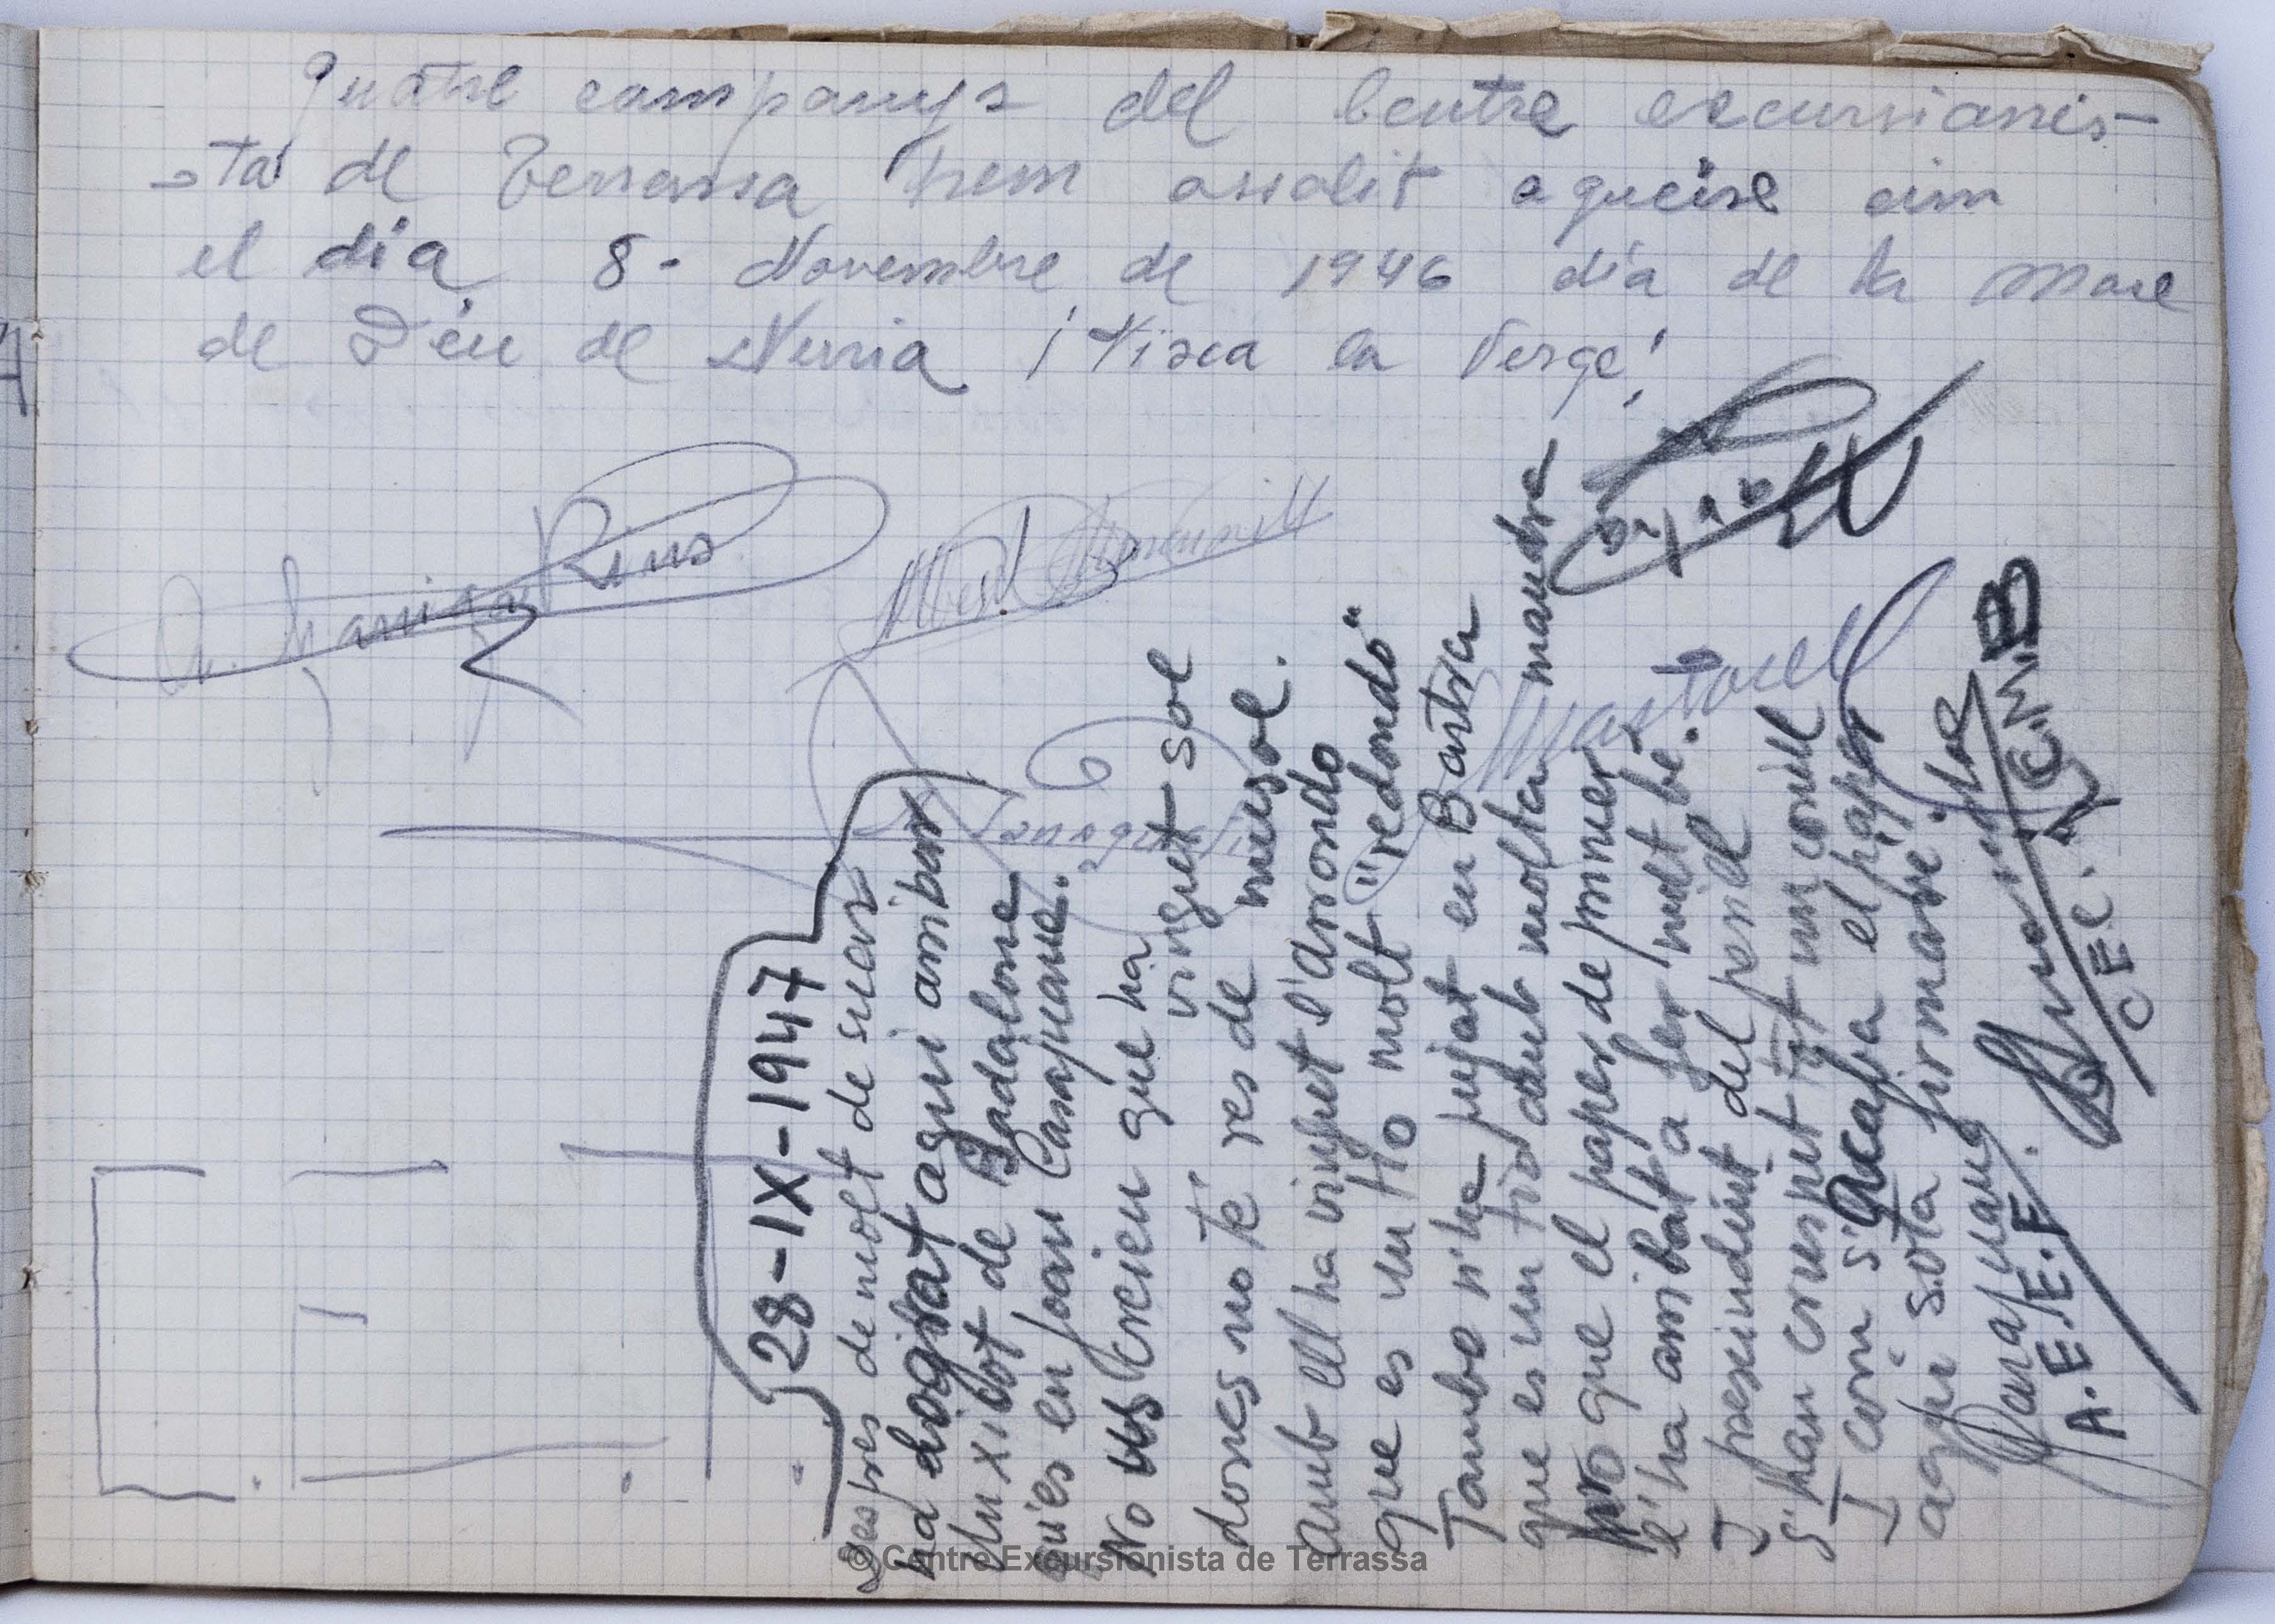 Quatre companys del Centre excursionis-
-ta de Terrassa hem assolit aqueixe cim
el día 8- Novembre de 1946 día de la Mare
de Déu de Nuria ¡Visca la Verge!
Rius
Martorell
28-IX-1947
Despres de molt de suar
ha lograt aqui arribar
un xicot de Badalona
qui es en Joan Casajuana.
No us creieu que ha vingut sol
doncs no te res de mussol.
Amb ell ha vingut l'Arrondo
que es un tio molt "redondo"
Tambe n'ha pujat en Bartra
que es un tio amb molta mandra
pro que el paper de primer
l'ha arribat a fer molt bé.
I prescindint del perill
s'han cruspit tot un conill
I com s'acaba el paper
aqui sota firmare
Casajuana
A.E.E.F.
C.E.C.
C.M.B
© Centre Excursionista de Terrassa